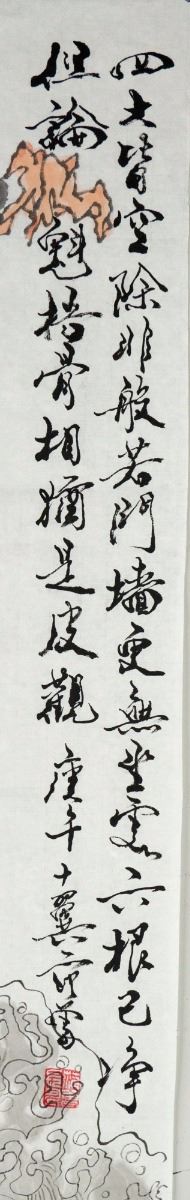 四大皆空除非般若門墻更無坐處六根已净
但論魁梧骨相猶是皮觀 庚午十翼